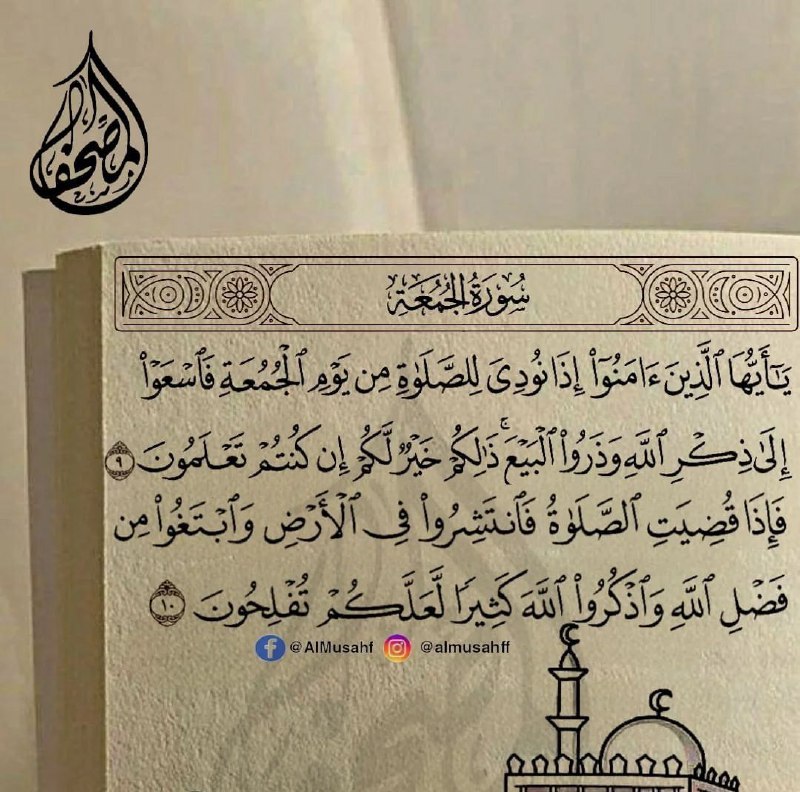 المصحف
سُورَةُ الجُمُعَةِ
يَٰٓأَيُّهَا ٱلَّذِينَ ءَامَنُوٓا۟ إِذَا نُودِىَ لِلصَّلَوٰةِ مِن يَوْمِ ٱلْجُمُعَةِ فَٱسْعَوْا۟
إِلَىٰ ذِكْرِ ٱللَّهِ وَذَرُوا۟ ٱلْبَيْعَ ۚ ذَٰلِكُمْ خَيْرٌ لَّكُمْ إِن كُنتُمْ تَعْلَمُونَ ٩
فَإِذَا قُضِيَتِ ٱلصَّلَوٰةُ فَٱنتَشِرُوا۟ فِى ٱلْأَرْضِ وَٱبْتَغُوا۟ مِن
فَضْلِ ٱللَّهِ وَٱذْكُرُوا۟ ٱللَّهَ كَثِيرًا لَّعَلَّكُمْ تُفْلِحُونَ ١٠
@AlMusahf @almusahff